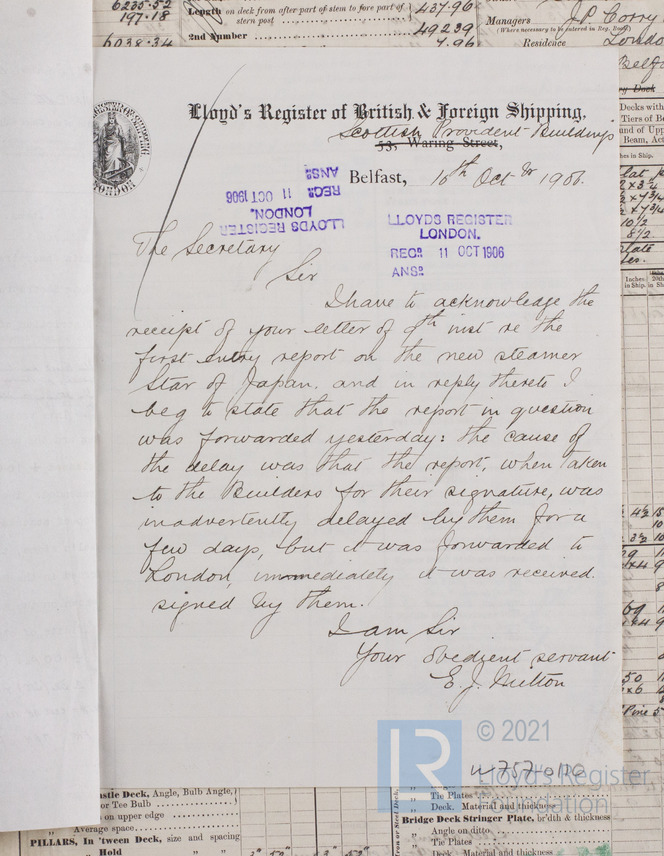 6235.52
197.18
6038.34
Length on deck from after part of stem to fore part of
stern post
437.96
2nd Number
49239
7.96
Managers J.P. Corry
(Where necessary to be entered in Reg. Book)
Residence London
Lloyd's Register of British & Foreign Shipping,
Scottish Provident Buildings
53, Waring Street,
Belfast, 10th Octr 1906.
LLOYDS REGISTER
LONDON.
RECD 11 OCT 1906
ANSD
LLOYDS REGISTER
LONDON.
RECD 11 OCT 1906
ANSD
LONDON
The Secretary
Sir
I have to acknowledge the
receipt of your letter of 9th inst re the
first entry report on the new steamer
Star of Japan. and in reply thereto I
beg to state that the report in question
was forwarded yesterday: the cause of
the delay was that the report, when taken
to the Builders for their signature, was
inadvertently delayed by them for a
few days, but it was forwarded to
London, immediately it was received
signed by them.
I am Sir
Your obedient servant
E. J. Milton
LR © 2021
Lloyd's Register
Foundation
W757-0120
astic Deck, Angle, Bulb Angle,
or Tee Bulb
on upper edge
Average space
PILLARS, In 'tween Deck, size and spacing
" Hold
" Tie Plates
" Deck. Material and thickness
Bridge Deck Stringer Plate, br'dth & thickness
" Angle on ditto
" Tie Plates
" Deck. Material and thickness